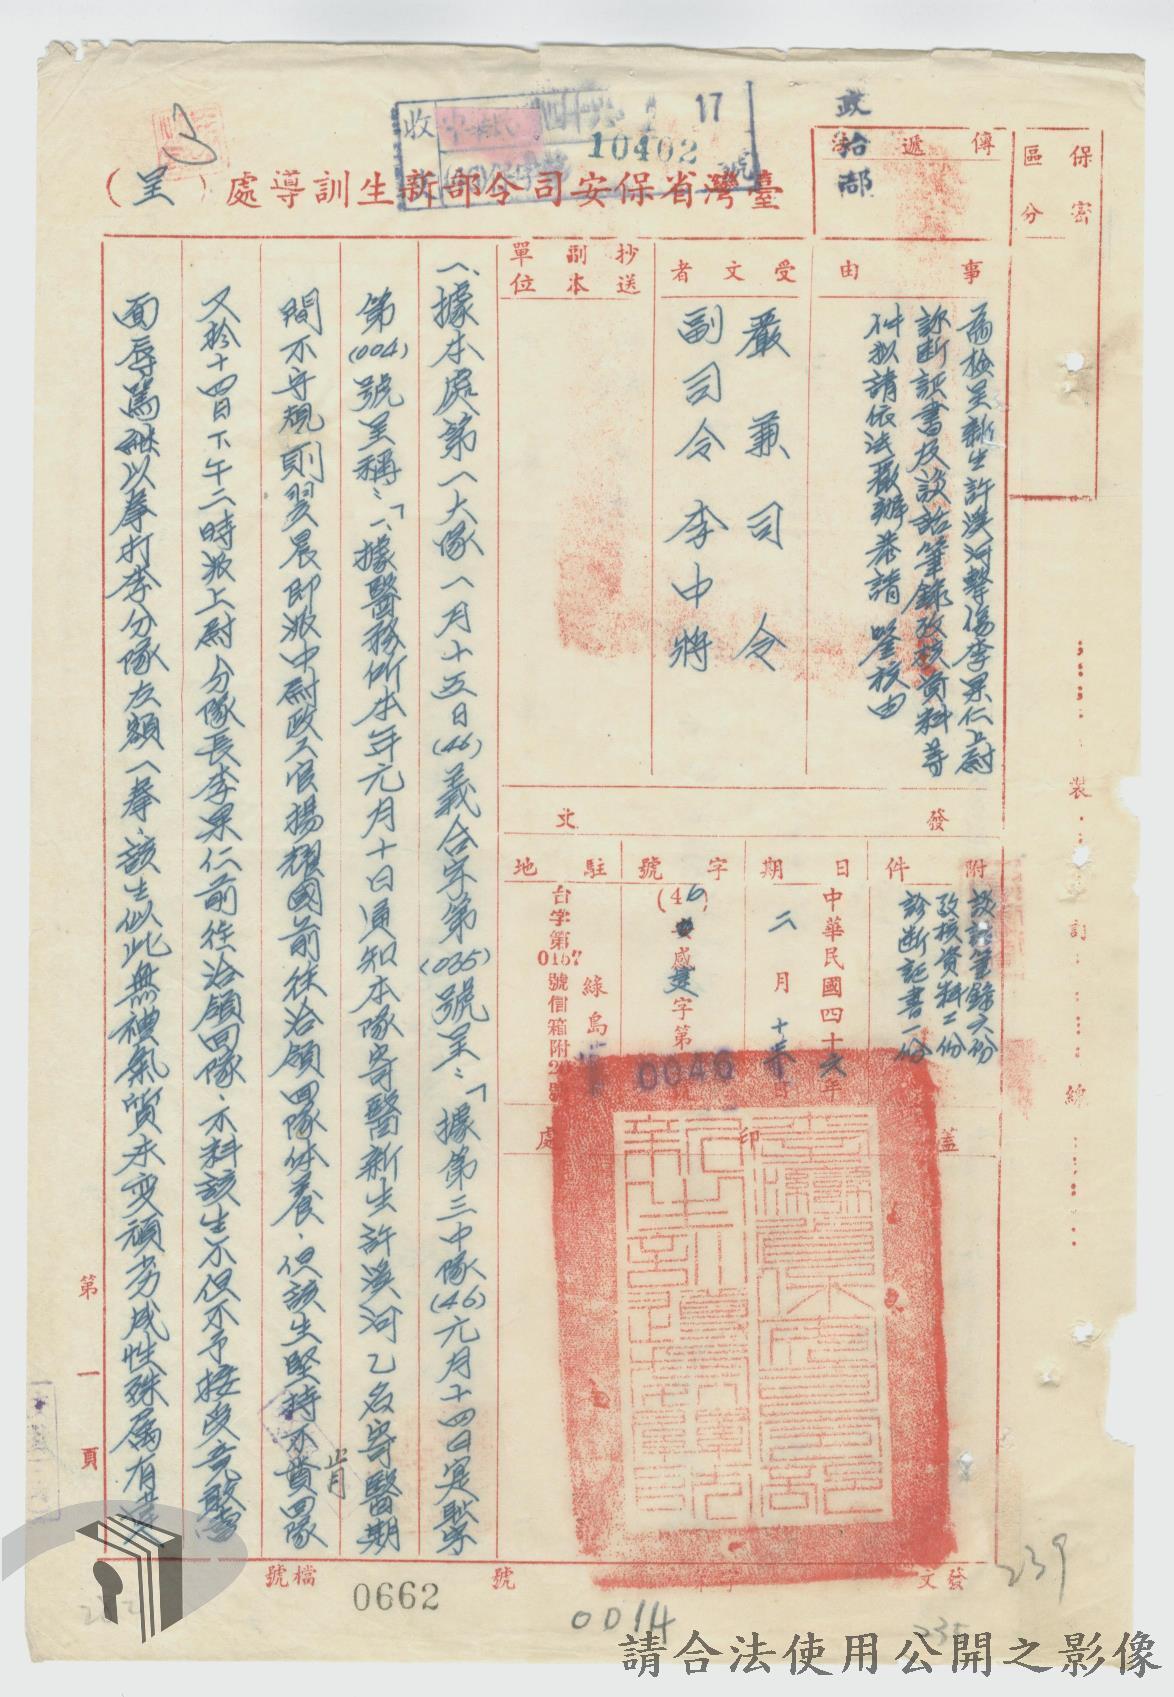 政治部
收
17
10402
號
臺灣省保安司令部新生訓導處（呈）
保密
區分
傳遞
事由
為檢呈新生許漢河擊傷李果仁上尉
診斷証書及談話筆錄攷核資料等
件拟請依法嚴辦恭請 鑒核由
受文者
嚴兼司令
副司令李中將
抄送
副本
單位
發文
附件
談話筆錄六份
攷核資料二份
診斷証書一份
日期
中華民國四十六年
二月十
日
字號
(46)
感建字第
0046
號
駐地
綠島
台字第0157號信箱附
號
蓋印處
一、據本處第一大隊一月十五日(46)義台字第(035)號呈：「據第三中隊(46)元月十四日寔
第(004)號呈稱：「一、據醫務所本年元月十日通知本隊寄醫新生許漢河乙名寄醫期
間不守規則翌晨即派中尉政工官揚耀國前往洽領回隊休養、但該生堅持不賣回隊
止月
又於十四日下午二時派上尉分隊長李果仁前往洽領回隊、不料該生不但不予接受竟敢當
面辱罵継以拳打李分隊左額一拳、該生似此無禮氣質未变頑劣成性殊属有
裝
訂
線
第一頁
檔號
0662
號
發文
字第
0014
239
235
請合法使用公開之影像